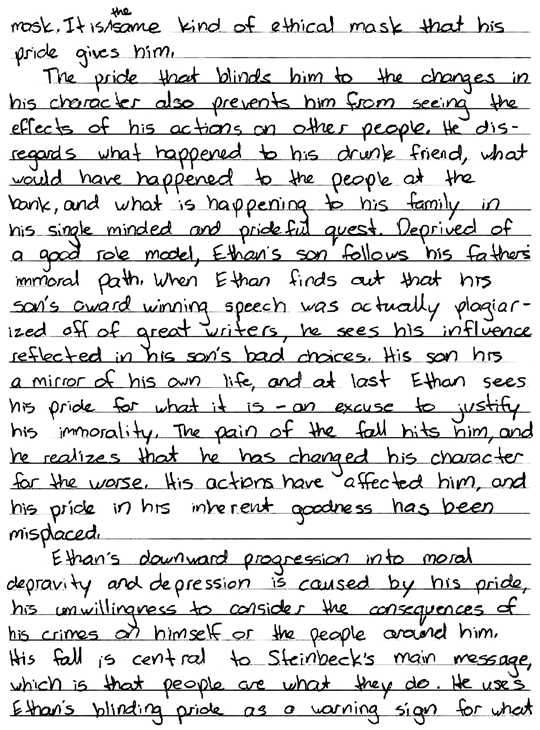 mask. It is the same kind of ethical mask that his
pride gives him.
The pride that blinds him to the changes in
his character also prevents him from seeing the
effects of his actions on other people. He dis-
regards what happened to his drunk friend, what
would have happened to the people at the
bank, and what is happening to his family in
his single minded and prideful quest. Deprived of
a good role model, Ethan's son follows his fathers
immoral path. When Ethan finds out that his
son's award winning speech was actually plagiar-
ized off of great writers, he sees his influence
reflected in his son's bad choices. His son his
a mirror of his own life, and at last Ethan sees
his pride for what it is - an excuse to justify
his immorality. The pain of the fall hits him, and
he realizes that he has changed his character
for the worse. His actions have affected him, and
his pride in his inherent goodness has been
misplaced.
Ethan's downward progression into moral
depravity and depression is caused by his pride,
his unwillingness to consider the consequences of
his crimes on himself or the people around him.
His fall is central to Steinbeck's main message,
which is that people are what they do. He uses
Ethan's blinding pride as a warning sign for what